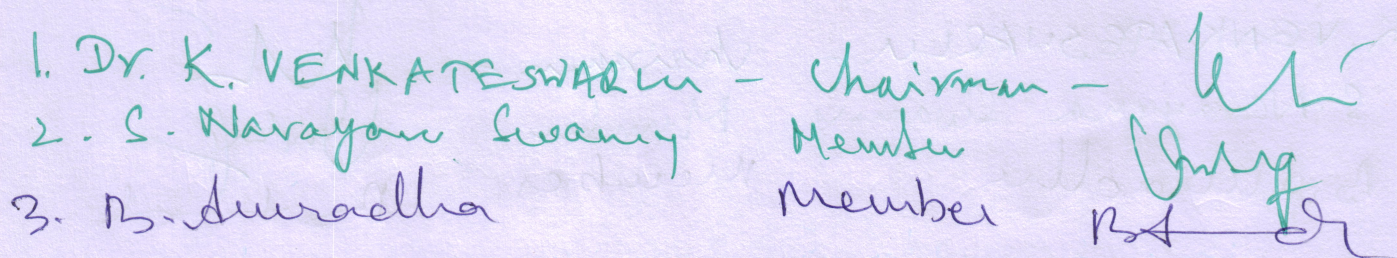 1. Dr. K. VENKATESWARLU - Chairman -
2. S. Narayan Swamy Member
3. B. Anuradha Member